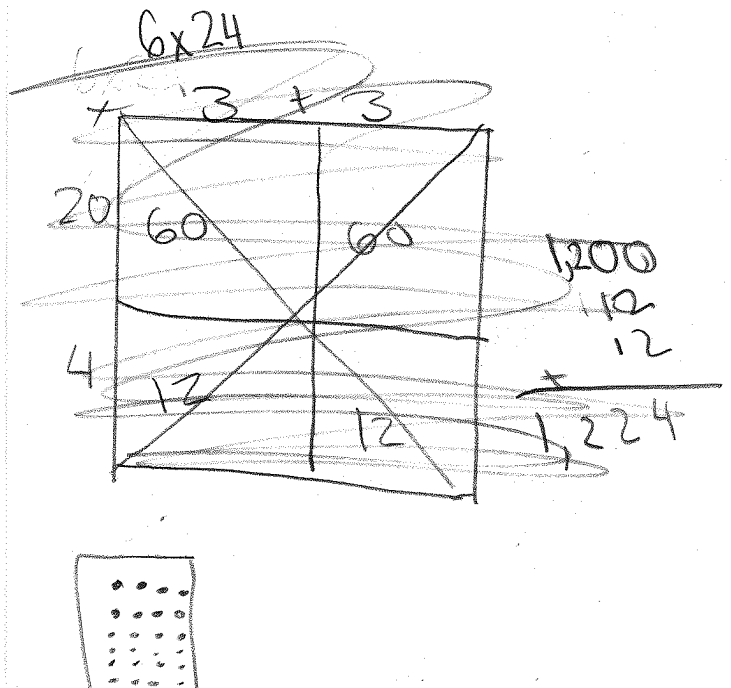 6x24
+ 3 + 3
20 60 60
1,200
12
12
4 12
+
12 1,224